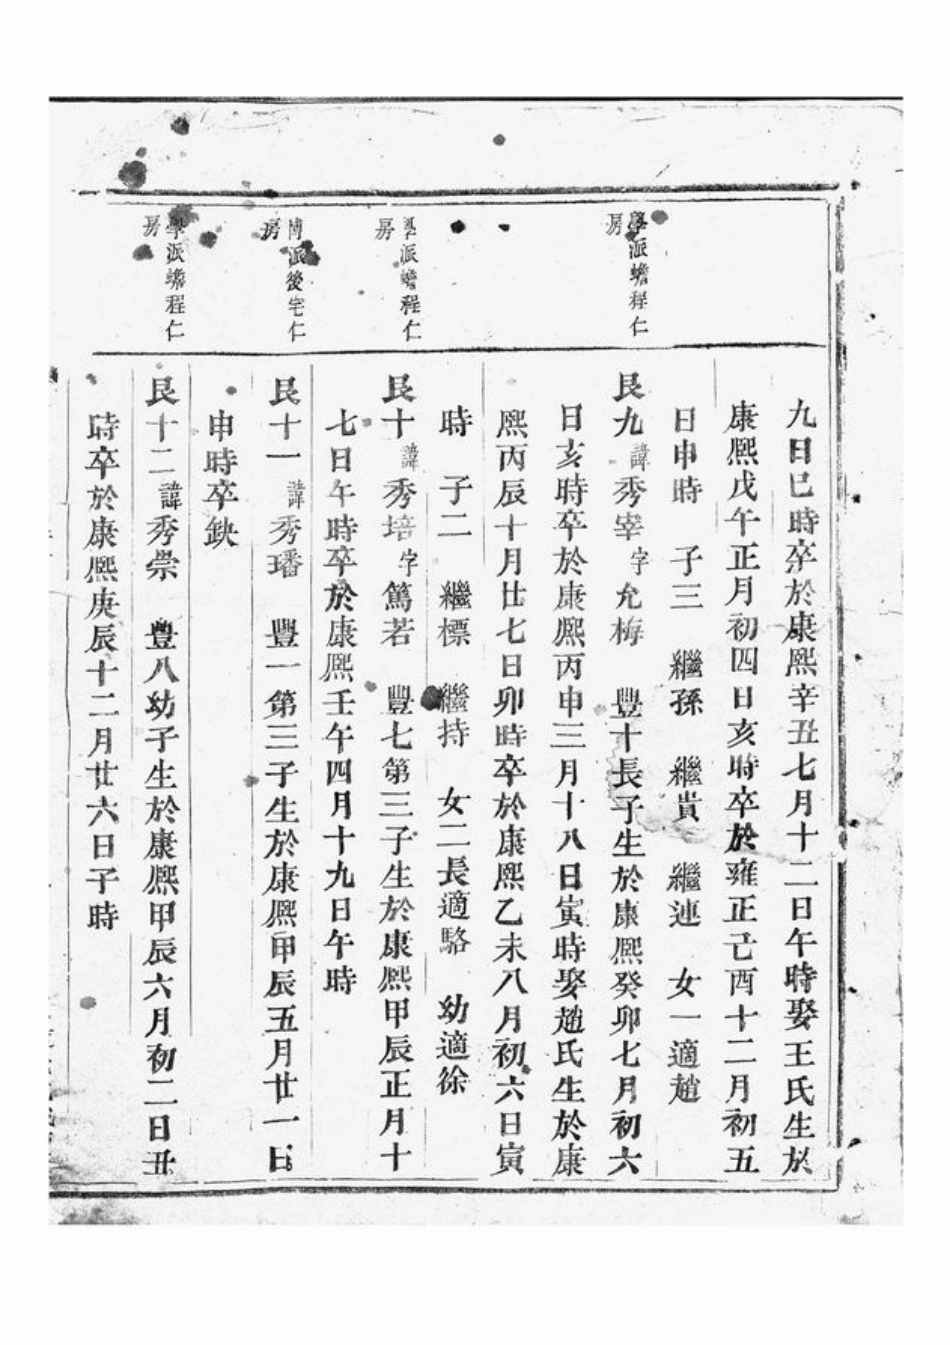 九日巳時卒於康熙辛丑七月十二日午時娶王氏生於
康熙戊午正月初四日亥時卒於雍正己酉十二月初五
日申時 子三 繼孫 繼貴 繼連 女一適趙
學派蟾程仁
房
艮九諱秀宰字允梅 豐十長子生於康熙癸卯七月初六
日亥時卒於康熙丙申三月十八日寅時娶趙氏生於康
熙丙辰十月廿七日卯時卒於康熙乙未八月初六日寅
時 子二 繼標 繼持 女二長適駱 幼適徐
學派蟾程仁
房
艮十諱秀培字篤若 豐七第三子生於康熙甲辰正月十
七日午時卒於康熙壬午四月十九日午時
博派後宅仁
房
艮十一諱秀璠 豐一第三子生於康熙甲辰五月廿一日
申時卒缺
學派蟾程仁
房
艮十二諱秀崇 豐八幼子生於康熙甲辰六月初二日丑
時卒於康熙庚辰十二月廿六日子時